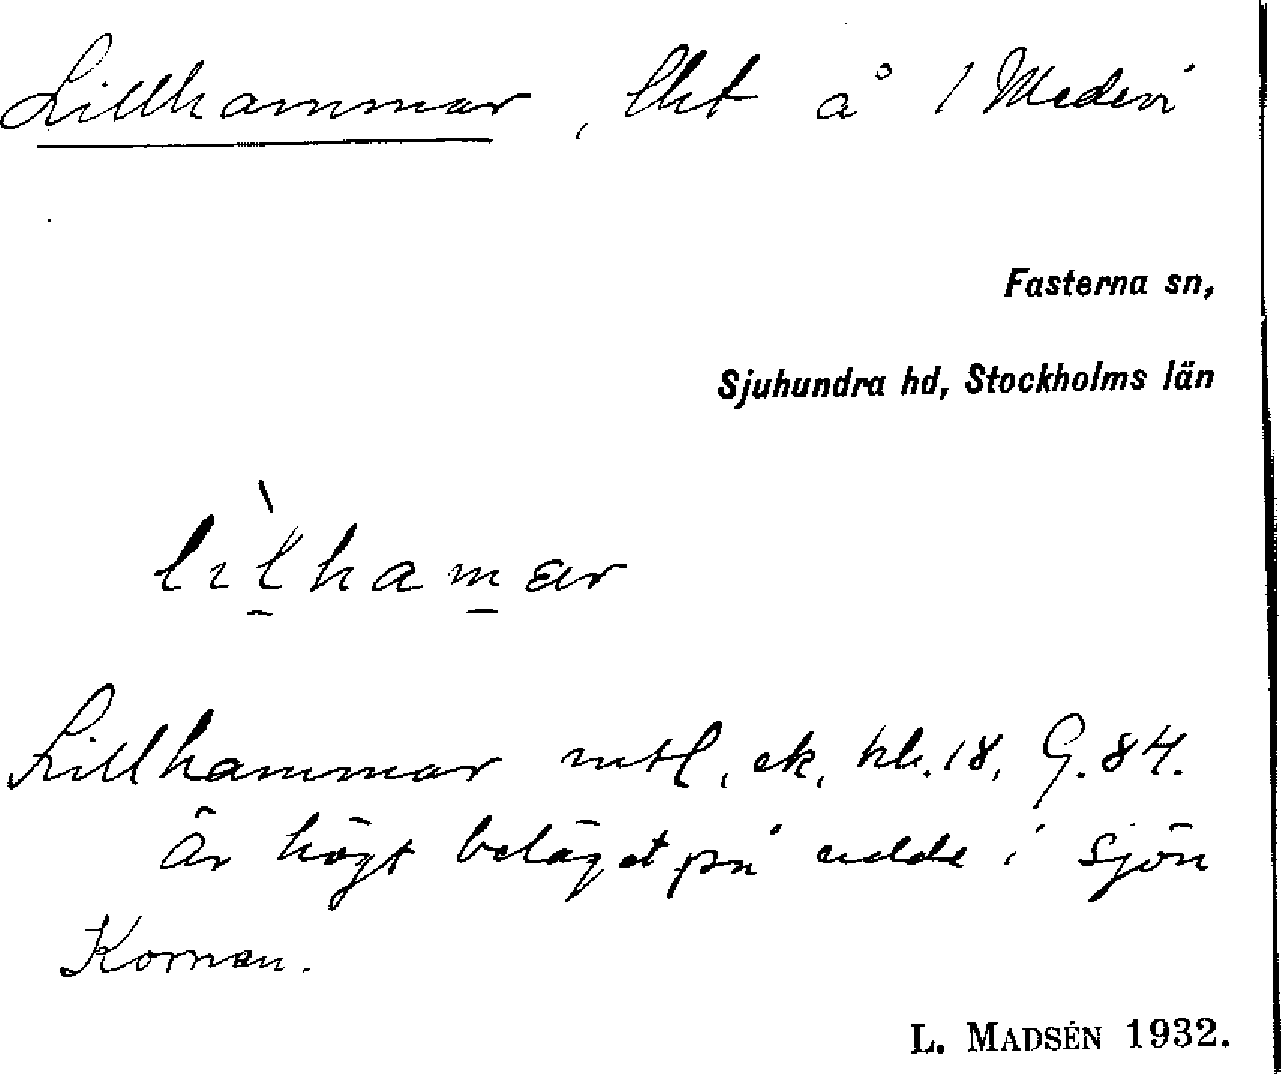 Lillhammar, lht å 1 Medevi
Fasterna sn,
Sjuhundra hd, Stockholms län
lìlhamar
Lillhammar mtl, ek, bl. 18, G. 84.
Är högt beläget på udde i sjön
Kornan.
L. MADSÉN 1932.